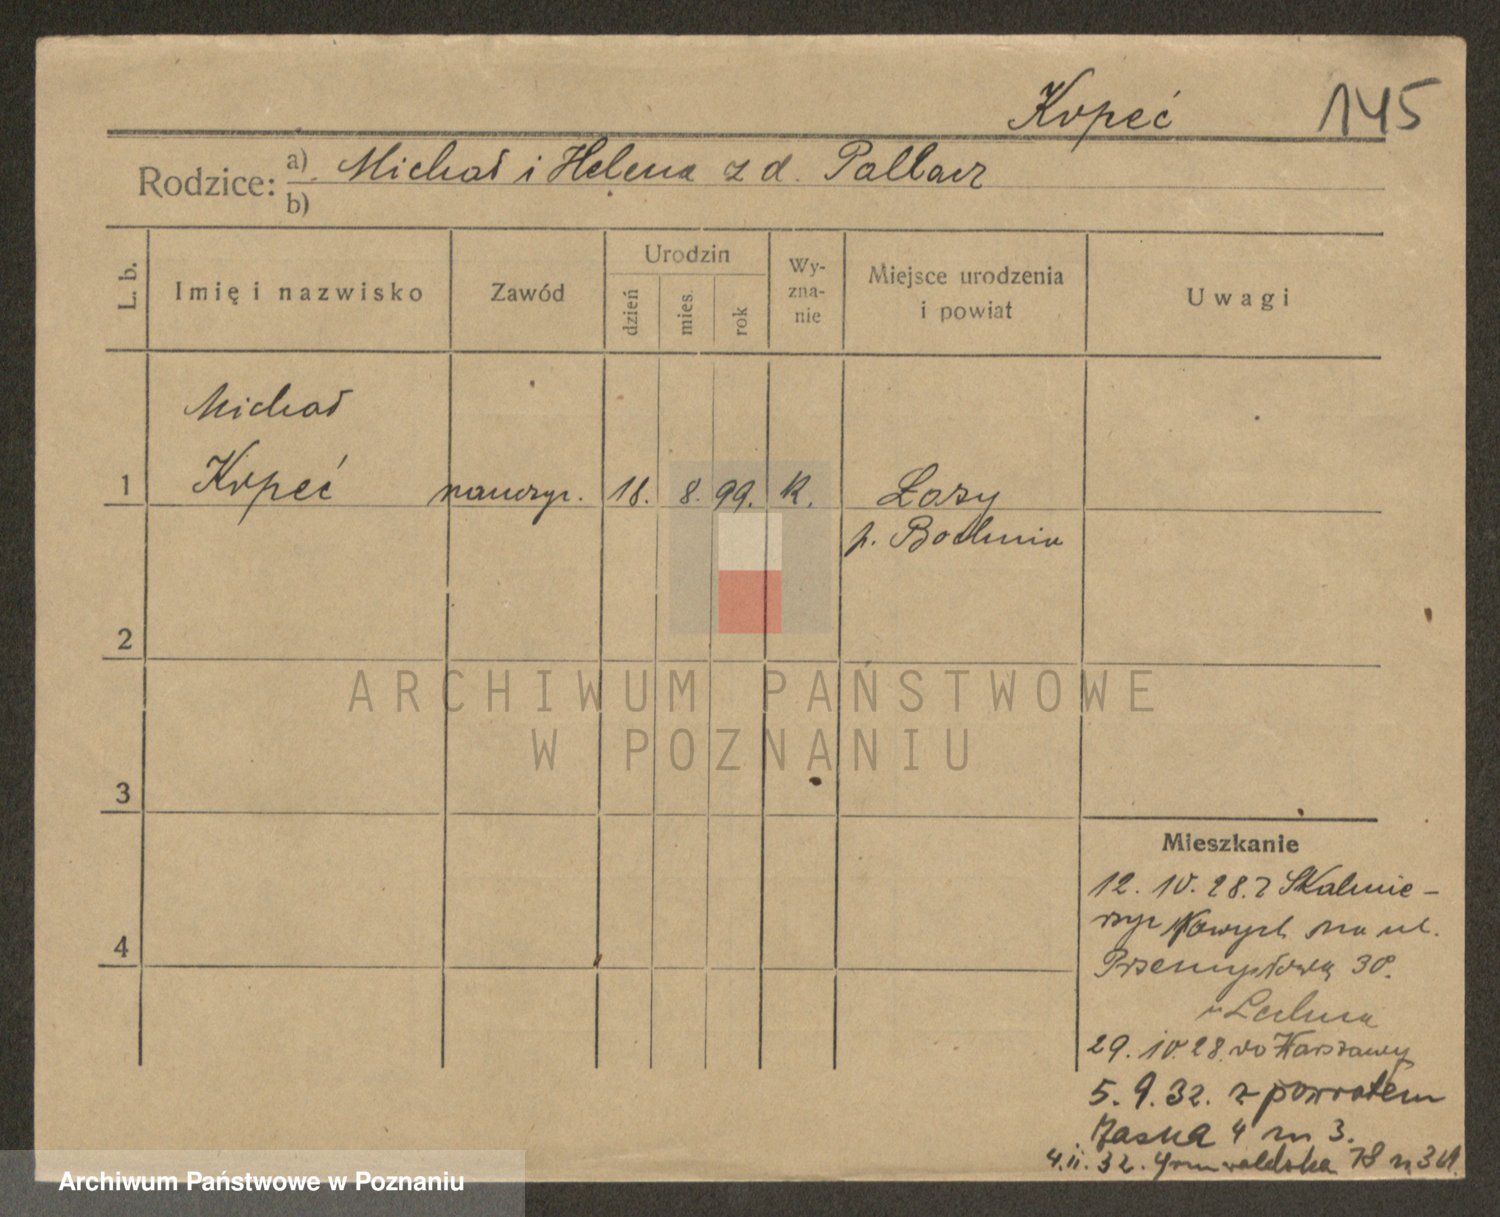 Kopeć 145
Rodzice: a) Michał i Helena z d. Pallacz
b)
L. b. Imię i nazwisko Zawód Urodzin dzień mies. rok Wyznanie Miejsce urodzenia i powiat Uwagi
Michał
1 Kopeć nauczyc. 18. 8. 99. K. Łazy
p. Bochnia
2
ARCHIWUM PAŃSTWOWE
W POZNANIU
3
Mieszkanie
12. 10. 28. z Skalmie-
rzyc Nowych na ul.
4
Przemysłową 30.
u
29. 10. 28. do Warszawy
5. 9. 32. z powrotem
Jasna 4 m 3.
4. 11. 32. Grunwaldzka 78
Archiwum Państwowe w Poznaniu